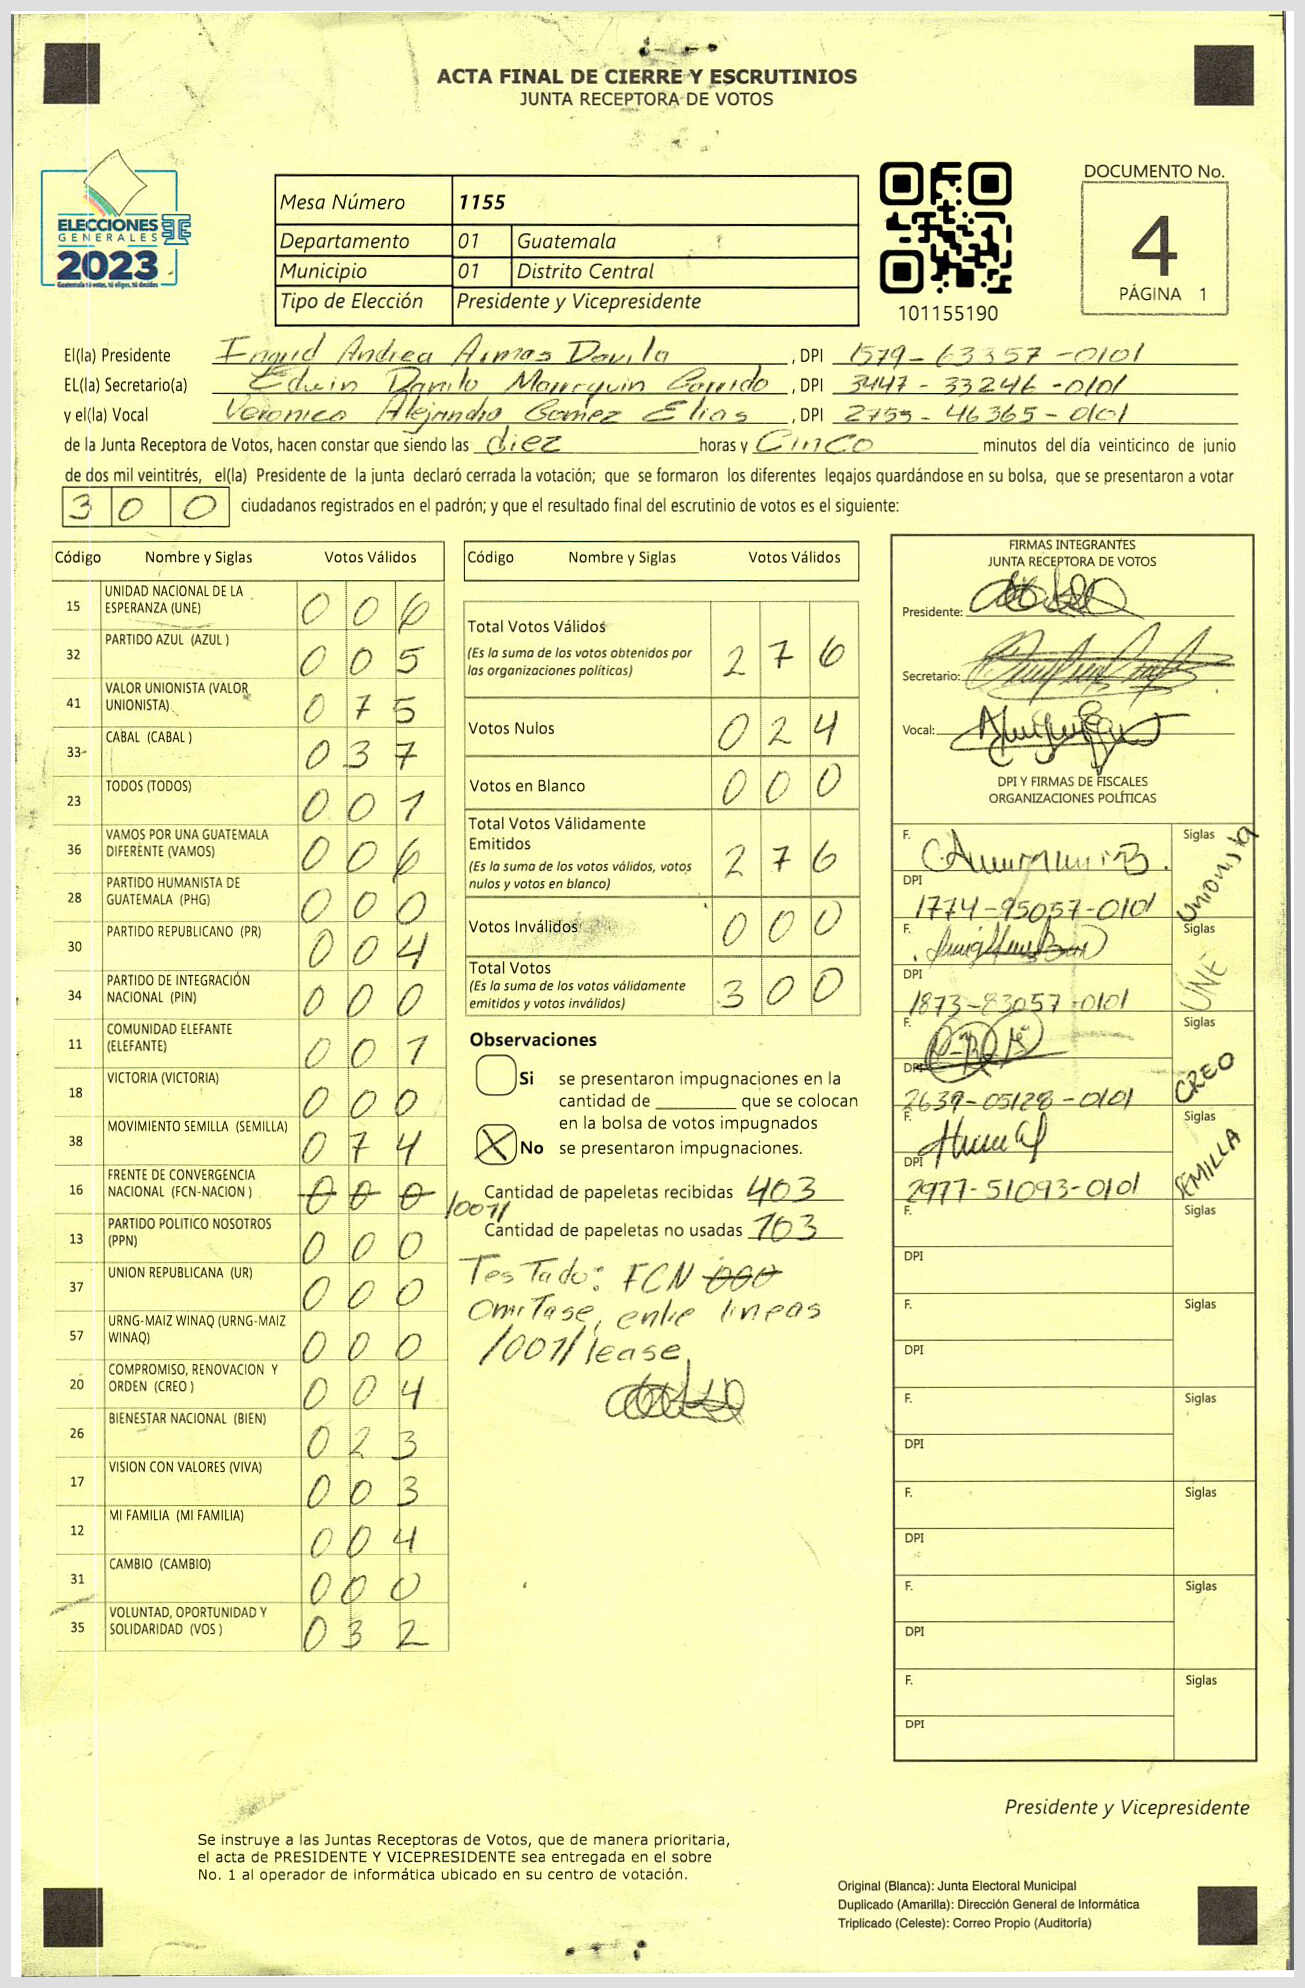 ACTA FINAL DE CIERRE Y ESCRUTINIOS
JUNTA RECEPTORA DE VOTOS
ELECCIONES
GENERALES
2023
Guatemala tú votas, tú eliges, tú decides
Mesa Número 1155
Departamento 01 Guatemala
Municipio 01 Distrito Central
Tipo de Elección Presidente y Vicepresidente
101155190
DOCUMENTO No.
4
PÁGINA 1
El(la) Presidente Ingrid Andrea Armas Davila , DPI 1579-63357-0101
EL(la) Secretario(a) Edwin Danilo Marroquin Garrido , DPI 3447-33246-0101
y el(la) Vocal Veronica Alejandra Gomez Elias , DPI 2755-46365-0101
de la Junta Receptora de Votos, hacen constar que siendo las diez horas y Cinco minutos del día veinticinco de junio
de dos mil veintitrés, el(la) Presidente de la junta declaró cerrada la votación; que se formaron los diferentes legajos guardándose en su bolsa, que se presentaron a votar
300 ciudadanos registrados en el padrón; y que el resultado final del escrutinio de votos es el siguiente:
Código Nombre y Siglas Votos Válidos
15 UNIDAD NACIONAL DE LA
ESPERANZA (UNE) 006
32 PARTIDO AZUL (AZUL ) 005
41 VALOR UNIONISTA (VALOR
UNIONISTA) 075
33 CABAL (CABAL ) 037
23 TODOS (TODOS) 001
36 VAMOS POR UNA GUATEMALA
DIFERENTE (VAMOS) 006
28 PARTIDO HUMANISTA DE
GUATEMALA (PHG) 000
30 PARTIDO REPUBLICANO (PR) 004
34 PARTIDO DE INTEGRACIÓN
NACIONAL (PIN) 000
11 COMUNIDAD ELEFANTE
(ELEFANTE) 001
18 VICTORIA (VICTORIA) 000
38 MOVIMIENTO SEMILLA (SEMILLA) 074
16 FRENTE DE CONVERGENCIA
NACIONAL (FCN-NACION ) 000 /001/
13 PARTIDO POLITICO NOSOTROS
(PPN) 000
37 UNION REPUBLICANA (UR) 000
57 URNG-MAIZ WINAQ (URNG-MAIZ
WINAQ) 000
20 COMPROMISO, RENOVACION Y
ORDEN (CREO ) 004
26 BIENESTAR NACIONAL (BIEN) 023
17 VISION CON VALORES (VIVA) 003
12 MI FAMILIA (MI FAMILIA) 004
31 CAMBIO (CAMBIO) 000
35 VOLUNTAD, OPORTUNIDAD Y
SOLIDARIDAD (VOS ) 032
Código Nombre y Siglas Votos Válidos
Total Votos Válidos 276
(Es la suma de los votos obtenidos por
las organizaciones políticas)
Votos Nulos 024
Votos en Blanco 000
Total Votos Válidamente
Emitidos 276
(Es la suma de los votos válidos, votos
nulos y votos en blanco)
Votos Inválidos 000
Total Votos 300
(Es la suma de los votos válidamente
emitidos y votos inválidos)
Observaciones
Si se presentaron impugnaciones en la
cantidad de ________ que se colocan
en la bolsa de votos impugnados
X No se presentaron impugnaciones.
Cantidad de papeletas recibidas 403
Cantidad de papeletas no usadas 103
Testado: FCN 000
Omitase, entre lineas
/001/ lease
FIRMAS INTEGRANTES
JUNTA RECEPTORA DE VOTOS
Presidente:
Secretario:
Vocal:
DPI Y FIRMAS DE FISCALES
ORGANIZACIONES POLÍTICAS
F. Siglas Unionista
DPI
1774-95057-0101
F. Siglas UNE
DPI
1873-83057-0101
F. Siglas CREO
DPI
2639-05128-0101
F. Siglas SEMILLA
DPI
2977-51093-0101
F. Siglas
DPI
F. Siglas
DPI
F. Siglas
DPI
F. Siglas
DPI
F. Siglas
DPI
F. Siglas
DPI
Presidente y Vicepresidente
Se instruye a las Juntas Receptoras de Votos, que de manera prioritaria,
el acta de PRESIDENTE Y VICEPRESIDENTE sea entregada en el sobre
No. 1 al operador de informática ubicado en su centro de votación.
Original (Blanca): Junta Electoral Municipal
Duplicado (Amarilla): Dirección General de Informática
Triplicado (Celeste): Correo Propio (Auditoría)